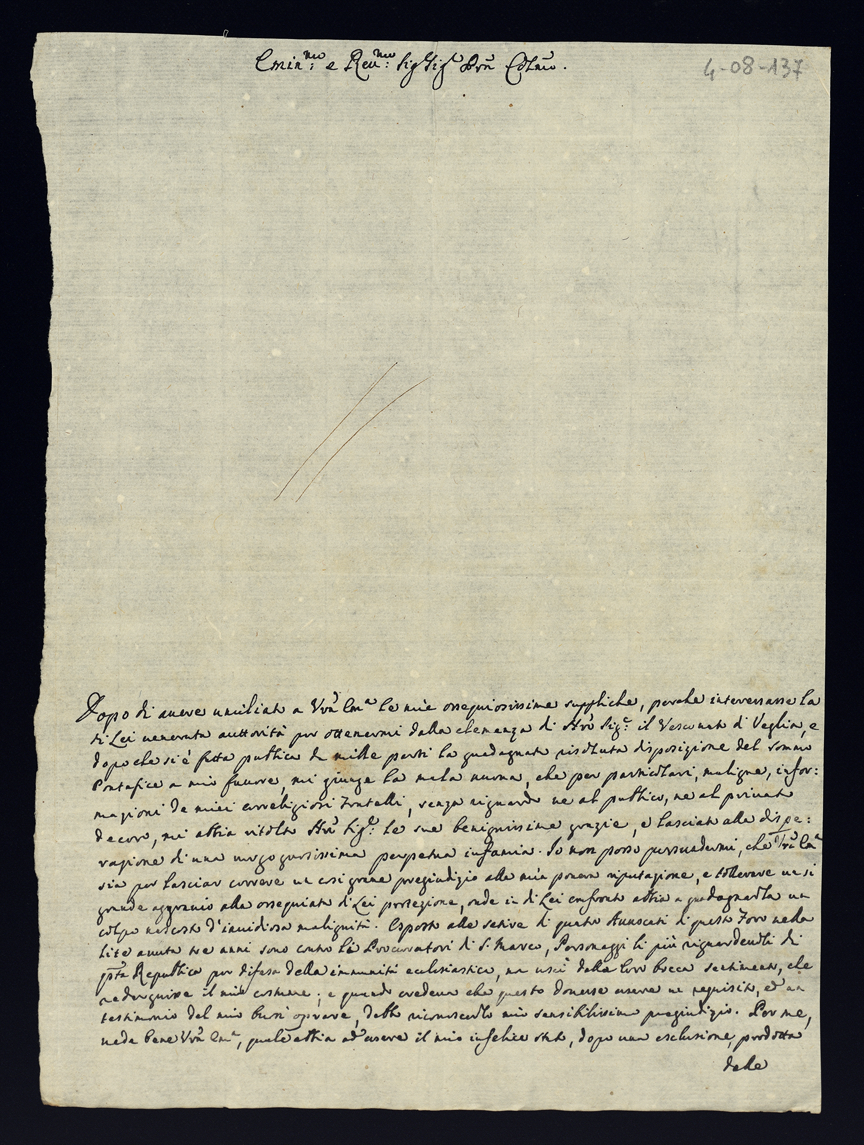 Emin.mo e Rev.mo Sig Sig.r Prñ Colmo.
4-08-137
Dopo di avere umiliato a Vrã Em.a le mie ossequiosissime suppliche, perche interessasse la
di Lei venerata auttorità per ottenermi dalla clemenza di Nrõ Sig.re il Vescovato di Veglia, e
dopo che si è fatta publica da mille parti la guadagnata risoluta disposizione del sommo
Pontefice a mio favore, mi giunge la mala nuova, che per particolari, maligne, infor:
mazioni de miei correligiosi Fratelli, senza riguardo ne al publico, ne al privato
decoro, mi abbia ritolto Nrõ Sig.re le sue benignissime grazie, e lasciato alla dispe:
razione di una vergognosissima perpetua infamia. Io non posso persuadermi, che Vrã Em.a
sia per lasciar correre un così grave pregiudizio alla mia povera riputazione, e tollerare un sì
grande aggravio alla ossequiata di Lei protezione, onde in di Lei confronto abbia a guadagnarla un
colpo nascosto d'invidiosa malignità. Esposto alle satire di quatro Avvocati di questo Foro nella
lite avuta tre anni sono contro li Procuratori di S. Marco, Personaggi li più riguardevoli di
pñta Republica per difesa della immunità eclesiastica, ne uscì dalla loro bocca sentimento, che
redarguisse il mio costume; e quando credeva che questo dovesse essere un requisito, ed un
testimonio del mio buon oprare, debbo riconoscerlo mio sensibilissimo pregiudizio. Per me,
veda bene Vrã Em.a, quale abbia ad essere il mio infelice stato, dopo una esclusione prodotta
dalla